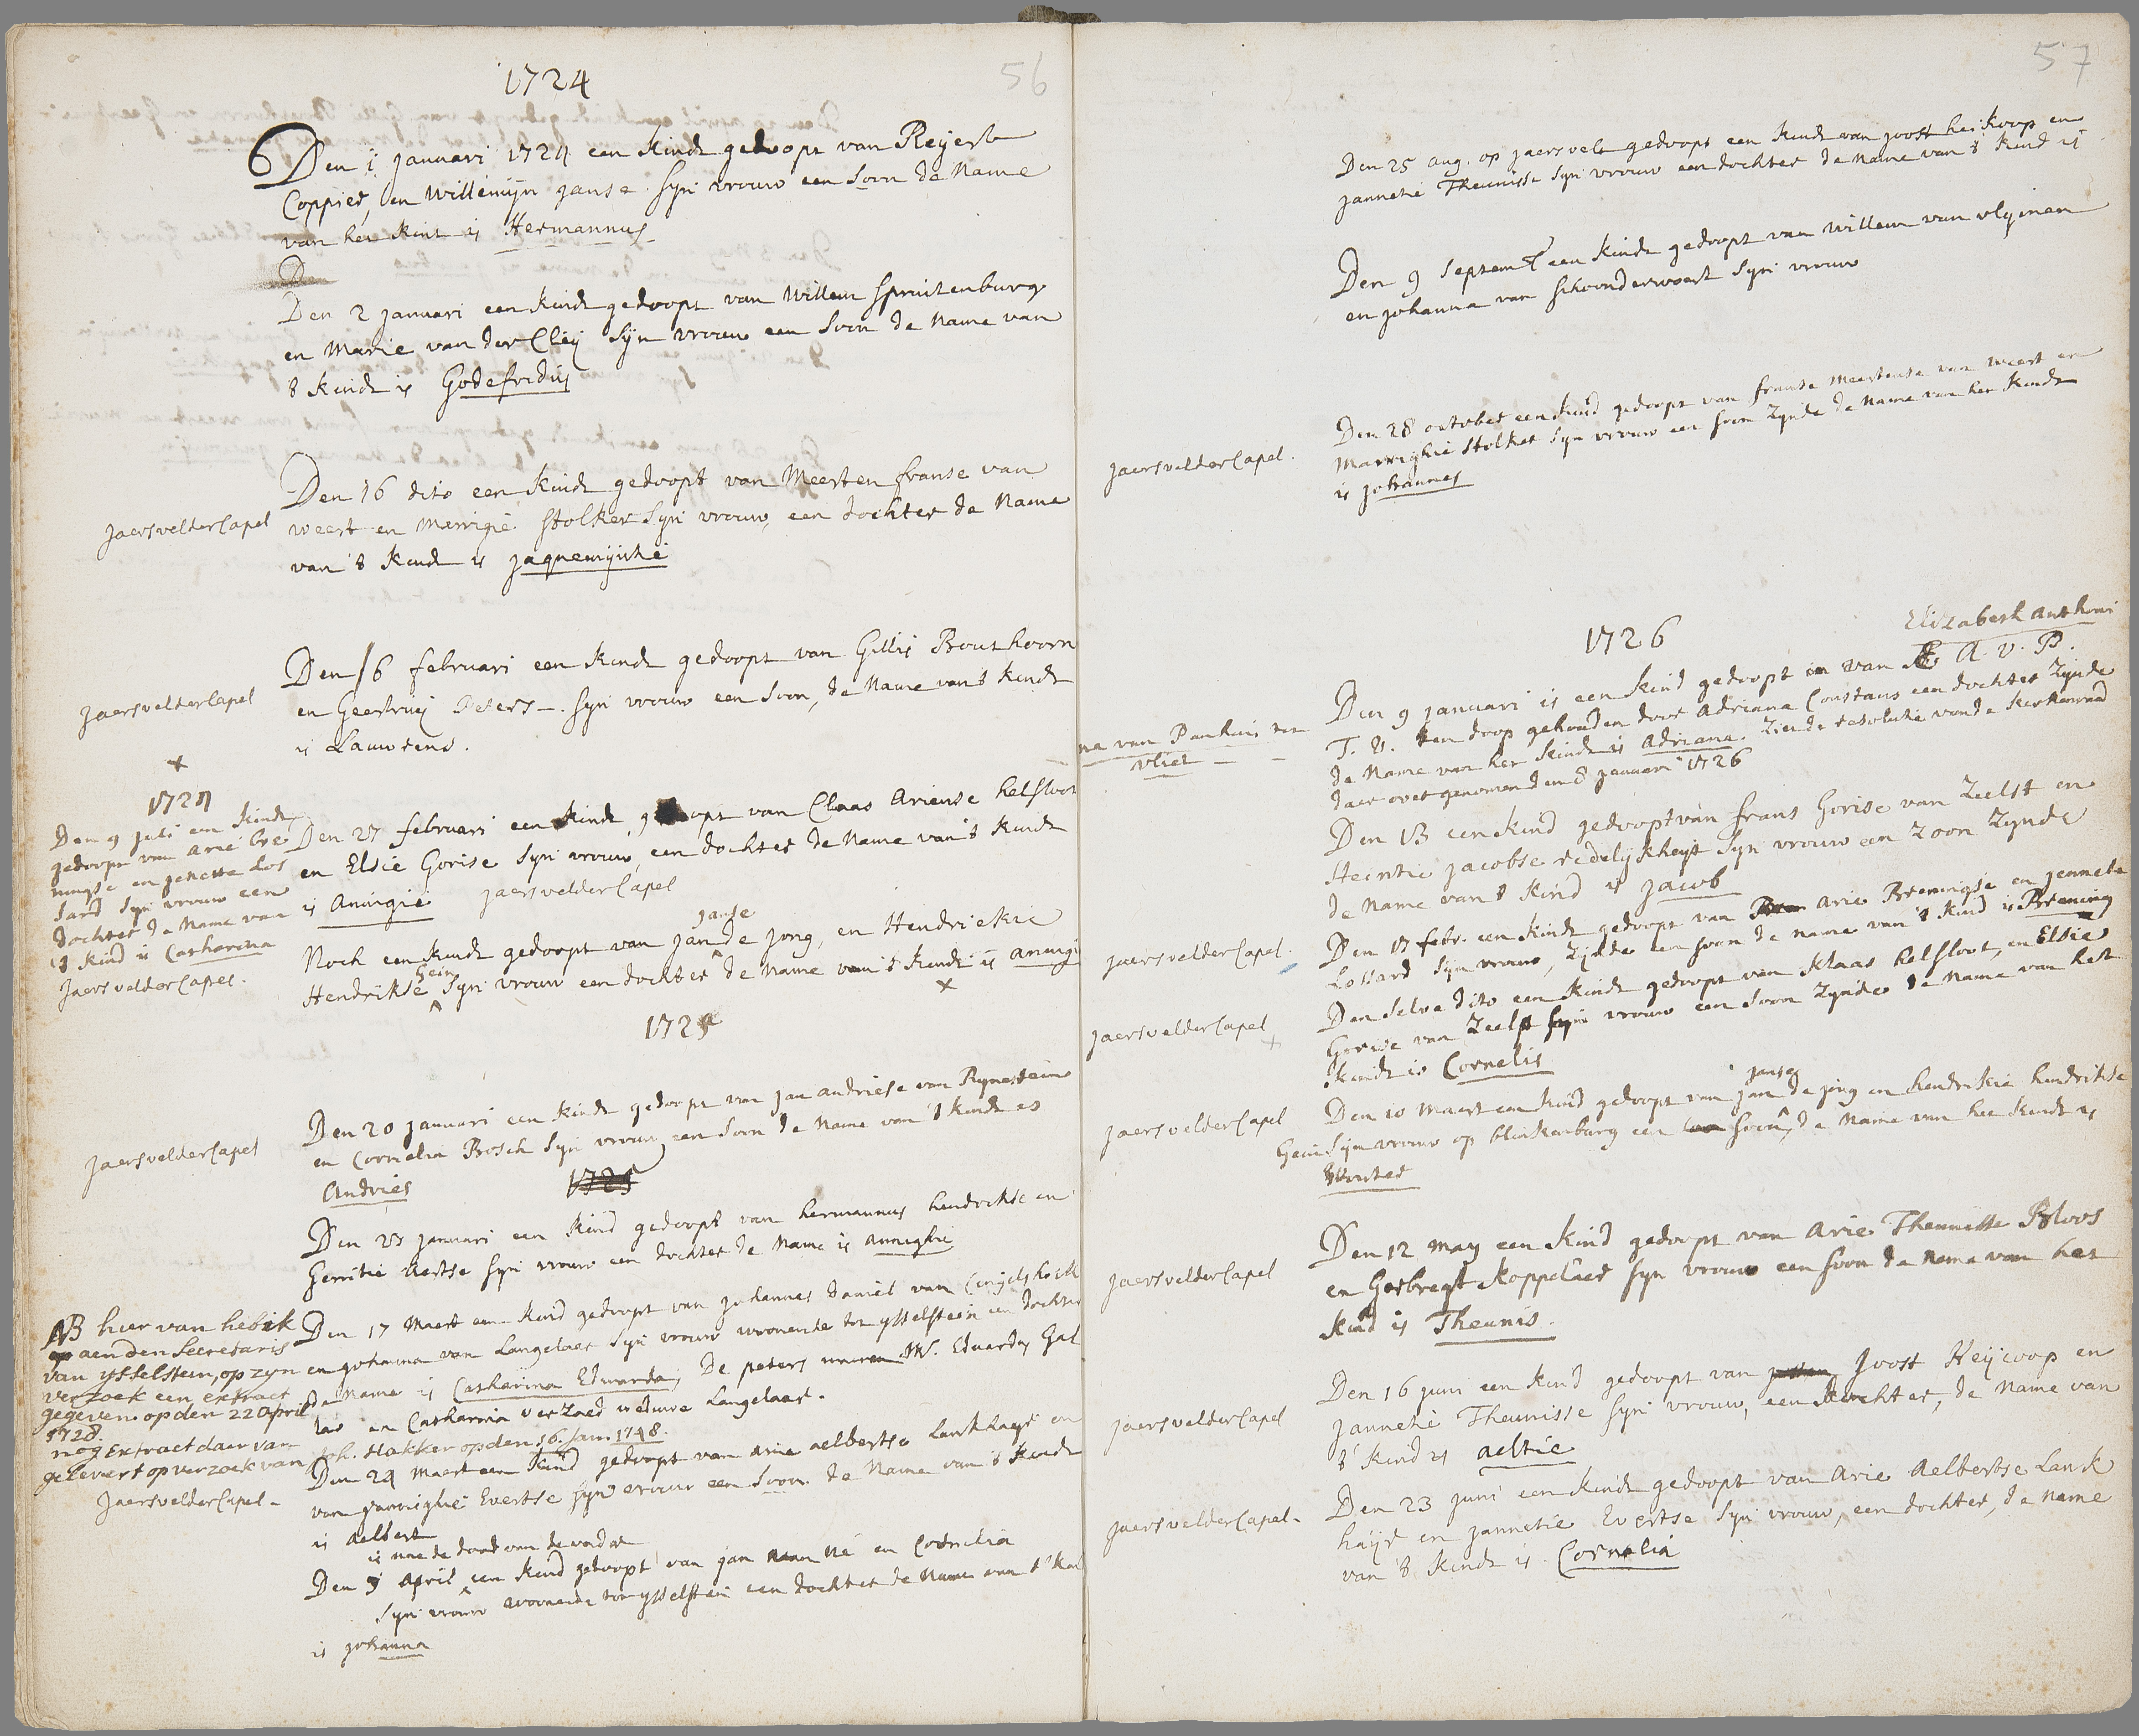 56
1724
Den 1 januari 1724 een kindt gedoopt van Reijert
Coppier, en Willemijn janse Syn vrouw een Soon de Name
van het kint is Hermannus
D
Den 2 januari een kindt gedoopt van Willem Spruitenburg
en Marie van der Cleij Syn vrouw een Soon de Name van
't kindt is Godefridus
Jaersvelder Capel
Den 16 dito een kindt gedoopt van Meerten franse van
weert en Merrigie Stolker Syn vrouw, een dochter de Name
van 't kindt is jaquemijntie
Jaersvelder Capel
Den 16 februari een kindt gedoopt van Gillis Bouthoorn
en Geertruij Peters Syn vrouw een Soon, de Name van 't kindt
is Lauwrens.
x
1724
Den 9 juli een kindt
gedoopt van arie bre
ningse en jenette Los
sard Syn vrouw een
dochter de Name van
't kind is Catharina
Jaersvelder Capel.
Den 27 februari een kindt gedoopt van Claas Ariense helsloot
en Elsie Gorise Syn vrouw, een dochter de Name van 't kindt
is Annigie Jaersvelder Capel
janse
Noch een kindt gedoopt van jan de jong, en Hendrickie
Gein
Hendrikse Syn vrouw een dochter de Name van 't kindt is annigi
x
1725
Jaersvelder Capel
Den 20 januari een kindt gedoopt van jan andriese van Rynestein
en Cornelia Bosch Syn vrouw een Soon de Name van 't kindt es
Andries
1725
Den 28 januari een kind gedoopt van hermannus hendrickse en
Gerritie Aertse Syn vrouw een dochter de Name is annighie
NB hier van heb ik
aen den Secretaris
van ijsselstein, op zyn
verzoek een extract
gegeven op den 22 April
1728.
nog Extract daer van
gelevert op verzoek van
Joh. Hakker op den 16. Jan. 1748.
Den 17 Maert een kind gedoopt van johannes daniel van
en johanna van Langelaer Syn vrouw woonende tot ysselstein een dochter
de Name is Catharina Edwarda, De peters waren Mr. Eduardus Gal
las en Catharina verZaed weduwe Langelaar.
Jaersvelder Capel
Den 24 Maert een kind gedoopt van Arie aelbertse Lankhaijr en
van jannighie Evertse Syn vrouw een Soon de Name van 't kindt
is Aelbert
is nae de dood van de vader
Den 8 April een kind gedoopt van jan en Cornelia
Syn vrouw woonende tot ysselstein een dochter de Name van 't kind
is johanna
57
Den 25 aug. op jaersvelt gedoopt een kindt van joost heikoop en
jannetie Theunisse Syn vrouw een dochter de Name van 't kind is
Den 9 Septemb een kindt gedoopt van Willem van vlymen
en johanna van Schoonderwoert Syn vrouw
Jaersvelder Capel.
Den 28 october een kind gedoopt van franse Meertense van Weert en
Marrighie Stolker Syn vrouw een soon Zynde de Name van het kindt
is johannes
1726
Elizabeth anthoni
na van Panhuis van
vliet
Den 9 januari is een kind gedoopt van A. v. P.
T. V. ten doop gehouden door Adriana Constans een dochter Zynde
de Name van het kindt is Adriana. Ziende resolutie van de kerkenraad
daer over genomen den 8 januari 1726
Den 13 een kind gedoopt van frans Gorise van Zeelst en
Heintie jacobse redelijkheyt Syn vrouw een Zoon Zynde
de Name van 't kind is jacob
Jaersvelder Capel.
Den 17 febr. een kindt gedoopt van Arie Breningse en jennette
Lossard Syn vrouw, Zijnde een soon de name van 't kind is Brening
Jaersvelder Capel
x
Den Selve dito een kindt gedoopt van Klaas helsloot, en Elsie
Gorise van Zeelst Syn vrouw een Soon Zynde de Name van het
kindt is Cornelis
Jaersvelder Capel
janse
Den 10 Maert een kind gedoopt van jan de jong en hendrikie hendrikse
Gein Syn vrouw op blinkenburg een soon, de Name van het kindt is
Wouter
Jaersvelder Capel
Den 12 may een kind gedoopt van Arie Theunisse Bloos
en Gerbregt Koppelaer Syn vrouw een soon de Name van het
kind is Theunis.
Jaersvelder Capel
Den 16 juni een kind gedoopt van Joost Heijcoop en
jannetie Theunisse Syn vrouw, een dochter, de Name van
't kind is aeltie
Jaersvelder Capel.
Den 23 juni een kindt gedoopt van Arie Aelbertse Lank
haijr en jannetie Evertse Syn vrouw, een dochter, de name
van 't kindt is Cornelia